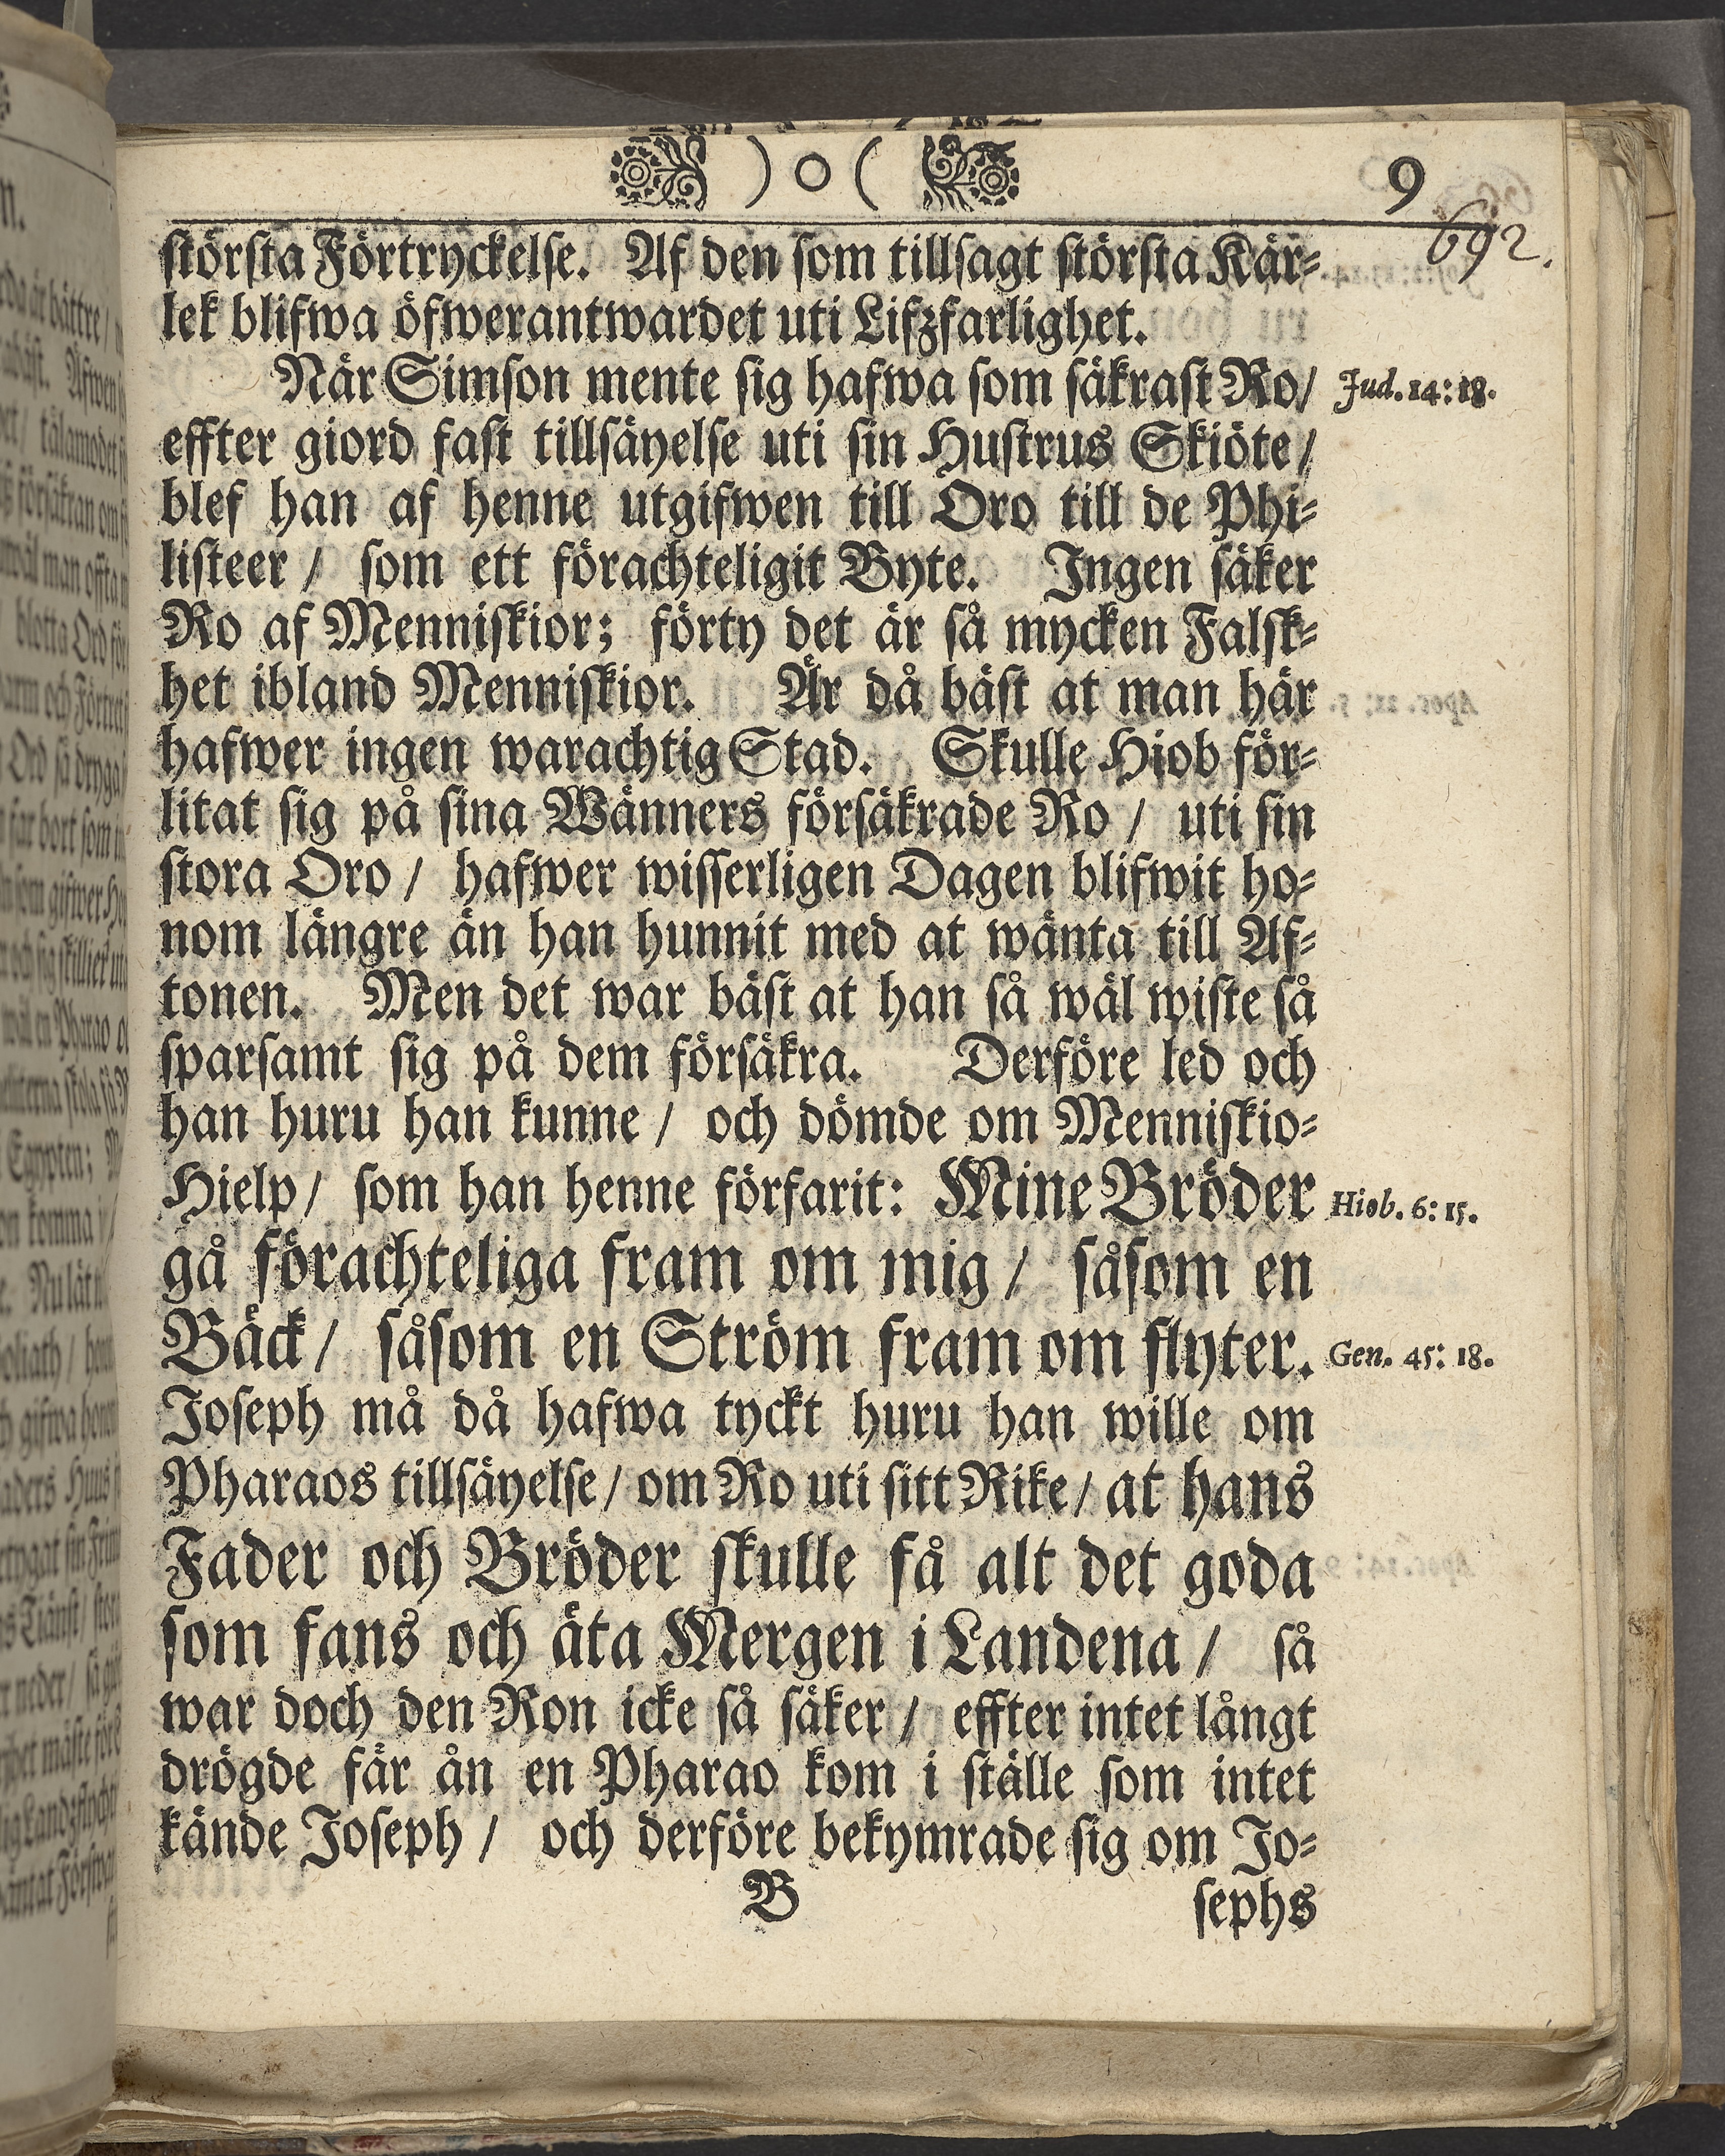 ) o ( 9
692.
största Förtryckelse. Af den som tillsagt största Kär-
lek blifwa öfwerantwardet uti Lifzfarlighet.
När Simson mente sig hafwa som säkrast Ro/ Jud. 14: 18.
effter giord fast tillsäyelse uti sin Hustrus Skiöte/
blef han af henne utgifwen till Oro till de Phi-
listeer / som ett förachteligit Byte. Ingen säker
Ro af Menniskior; förty det är så mycken Falsk-
het ibland Menniskior. Är då bäst at man här
hafwer ingen warachtig Stad. Skulle Hiob för-
litat sig på sina Wänners försäkrade Ro / uti sin
stora Oro / hafwer wisserligen Dagen blifwit ho-
nom längre än han hunnit med at wänta till Af-
tonen. Men det war bäst at han så wäl wiste så
sparsamt sig på dem försäkra. Derföre led och
han huru han kunne / och dömde om Menniskio-
Hielp/ som han henne förfarit: Mine Bröder Hiob. 6: 15.
gå förachteliga fram om mig / såsom en
Bäck/ såsom en Ström fram om flyter. Gen. 45: 18.
Joseph må då hafwa tyckt huru han wille om
Pharaos tillsäyelse/ om Ro uti sitt Rike/ at hans
Fader och Bröder skulle få alt det goda
som fans och äta Mergen i Landena / så
war doch den Ron icke så säker / effter intet långt
drögde får ån en Pharao kom i ställe som intet
kände Joseph / och derföre bekymrade sig om Jo-
B sephs